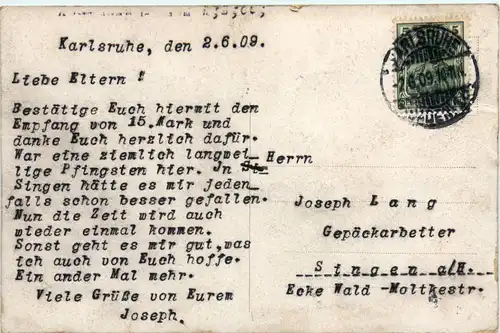 Karlsruhe, den 2.6.09.
Liebe Eltern !
Bestätige Euch hiermit den
Empfang von 15.Mark und
danke Euch herzlich dafür.
War eine ziemlich langwei_
lige Pfingsten hier. In
Singen hätte es mir jeden_
falls schon besser gefallen.
Nun die Zeit wird auch
wieder einmal kommen.
Sonst geht es mir gut,was
ich auch von Euch hoffe.
Ein ander Mal mehr.
Viele Grüße von Eurem
Joseph.
Herrn
Joseph Lang
Gepäckarbeiter
Singen a/H.
Ecke Wald -Moltkestr.
5 5
KARLSRUHE